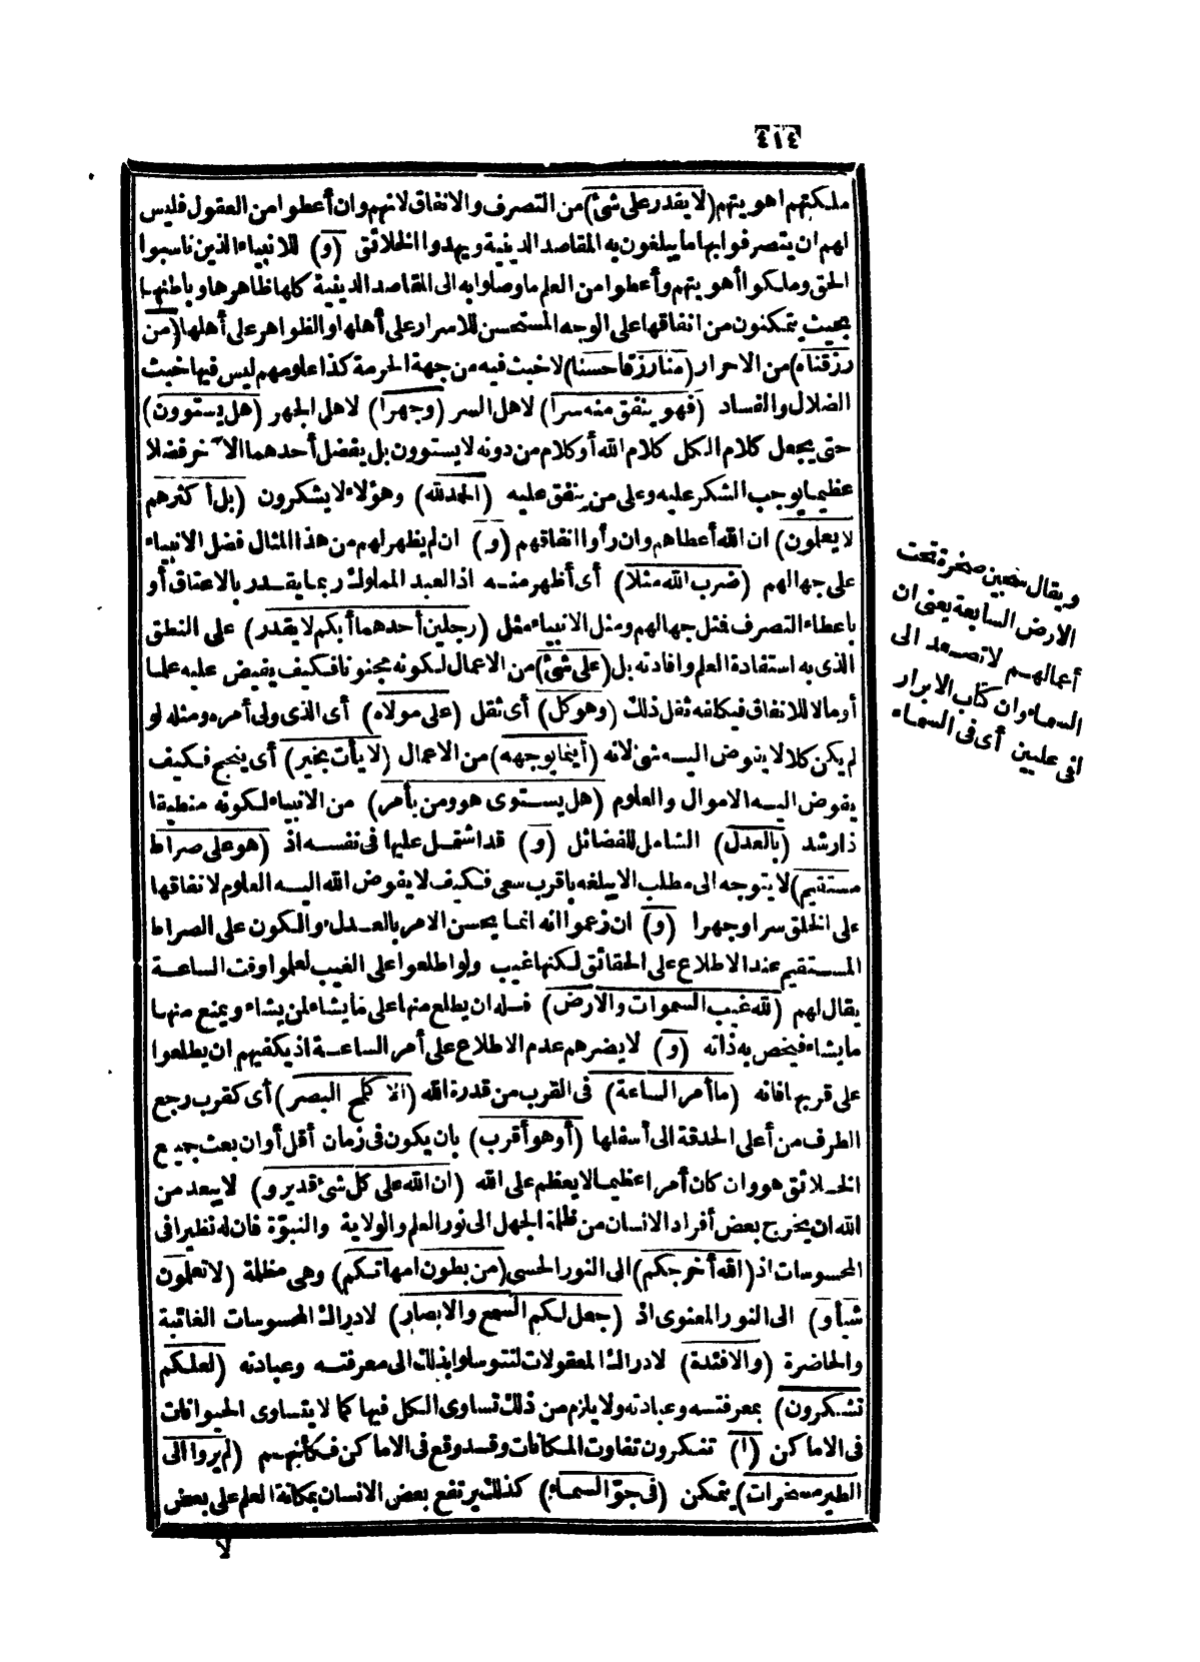 ٤١٤
ملكتهم أهويتهم (لا يقدر على شئ) من التصرف والانفاق لانهم وان أعطوا من العقول فليس
لهم ان يتصرفوا بها ما يبلغون به المقاصد الدينية ويهدوا الخلائق (و) للانبياء الذين ناسبوا
الحق وملكوا أهويتهم وأعطوا من العلم ما وصلوا به الى المقاصد الدينية كلها ظاهرها وباطنها
بحيث يتمكنون من انفاقها على الوجه المستحسن للاسرار على أهلها والظواهر على أهلها (من
رزقناه) من الاحرار (منا رزقا حسنا) لا خبث فيه من جهة الحرمة كذا علومهم ليس فيها خبث
الضلال والفساد (فهو ينفق منه سرا) لاهل السر (وجهرا) لاهل الجهر (هل يستوون)
حتى يجعل كلام الكل كلام الله أو كلام من دونه لا يستوون بل يفضل أحدهما الآخر فضلا
عظيما يوجب الشكر عليه وعلى من ينفق عليه (الحمد لله) وهؤلاء لا يشكرون (بل أكثرهم
لا يعلون) ان الله أعطاهم وان رأوا انفاقهم (و) ان لم يظهر لهم من هذا المثال فضل الانبياء
على جهالهم (ضرب الله مثلا) أى أظهر منه اذ العبد المملوك ربما يقدر بالاعتاق أو
باعطاء التصرف فمثل جهالهم ومثل الانبياء مثل (رجلين أحدهما أبكم لا يقدر) على النطق
الذى به استفادة العلم وافادته بل (على شئ) من الاعمال لكونه مجنونا فكيف يفيض عليه علما
أو مالا للانفاق فيكلفه ثقل ذلك (وهو كل) أى ثقل (على مولاه) أى الذى ولى أمره ومثله لو
لم يكن كلا لا يفوض اليه شئ لانه (أينما يوجهه) من الاعمال (لا يأت بخير) أى ينجح فكيف
يفوض اليه الاموال والعلوم (هل يستوى هو ومن يأمر) من الانبياء لكونه منطيقا
ذا رشد (بالعدل) الشامل للفضائل (و) قد اشتمل عليها فى نفسه اذ (هو على صراط
مستقيم) لا يتوجه الى مطلب الا يبلغه باقرب سعى فكيف لا يفوض الله اليه العلوم لانفاقها
على الخلق سرا وجهرا (و) ان زعموا انه انما يحسن الامر بالعدل والكون على الصراط
المستقيم عند الاطلاع على الحقائق لكنها غيب ولو اطلعوا على الغيب لعلموا وقت الساعة
يقال لهم (لله غيب السموات والارض) فله ان يطلع منها على ما يشاء لمن يشاء ويمنع منها
ما يشاء فيخص به ذاته (و) لا يضرهم عدم الاطلاع على أمر الساعة اذ يكفيهم ان يطلعوا
على قربها فانه (ما أمر الساعة) فى القرب من قدرة الله (الا كلمح البصر) أى كقرب رجع
الطرف من أعلى الحدقة الى أسفلها (أو هو أقرب) بان يكون فى زمان أقل أو ان بعث جميع
الخلائق هو وان كان أمرا عظيما لا يعظم على الله (ان الله على كل شئ قدير و) لا يبعد من
الله ان يخرج بعض أفراد الانسان من ظلمة الجهل الى نور العلم والولاية والنبوّة فان له نظيرا فى
المحسوسات اذ (الله أخرجكم) الى النور الحسى (من بطون امهاتكم) وهى مظلمة (لا تعلمون
شيأ و) الى النور المعنوى اذ (جعل لكم السمع والابصار) لادراك المحسوسات الغائبة
والحاضرة (والافئدة) لادراك المعقولات لتتوسلوا بذلك الى معرفته وعبادته (لعلكم
تشكرون) بمعرفته وعبادته ولا يلزم من ذلك تساوى الكل فيها كما لا يتساوى الحيوانات
فى الاماكن (ا) تنكرون تفاوت المكانات وقد وقع فى الاماكن فكأنهم (لم يروا الى
الطير مسخرات) يتمكن (فى جوّ السماء) كذلك يرتفع بعض الانسان بمكانة العلم على بعض
لا
ويقال سجين صخرة تحت
الارض السابعة يعنى ان
أعمالهم لا تصعد الى
السماء وان كتاب الابرار
لفى عليين أى فى السماء